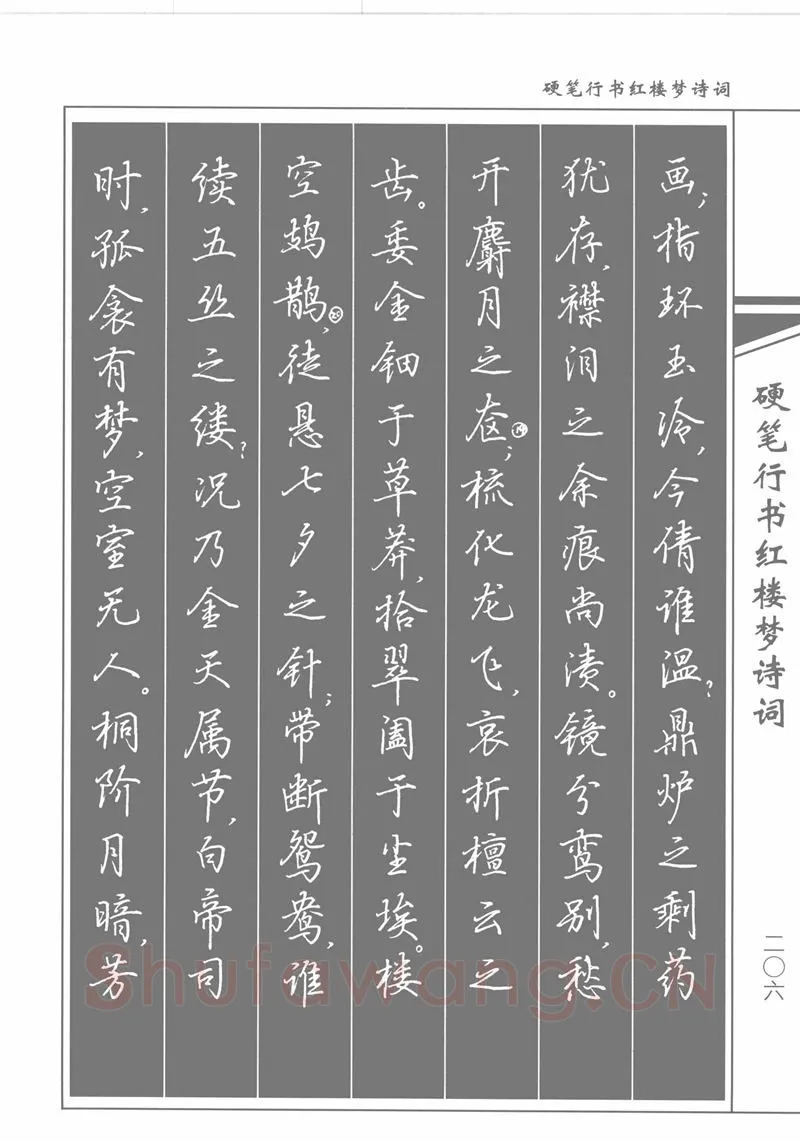 硬笔行书红楼梦诗词
画；指环玉冷，今倩谁温？鼎炉之剩药
犹存，襟泪之余痕尚渍。镜分鸾别，愁
开麝月之奁；梳化龙飞，哀折檀云之
齿。委金钿于草莽，拾翠盍于尘埃。楼
空鳷鹊，徒悬七夕之针；带断鸳鸯，谁
续五丝之缕？况乃金天属节，白帝司
时，孤衾有梦，空室无人。桐阶月暗，芳
硬笔行书红楼梦诗词
二〇六
Shufawang.CN